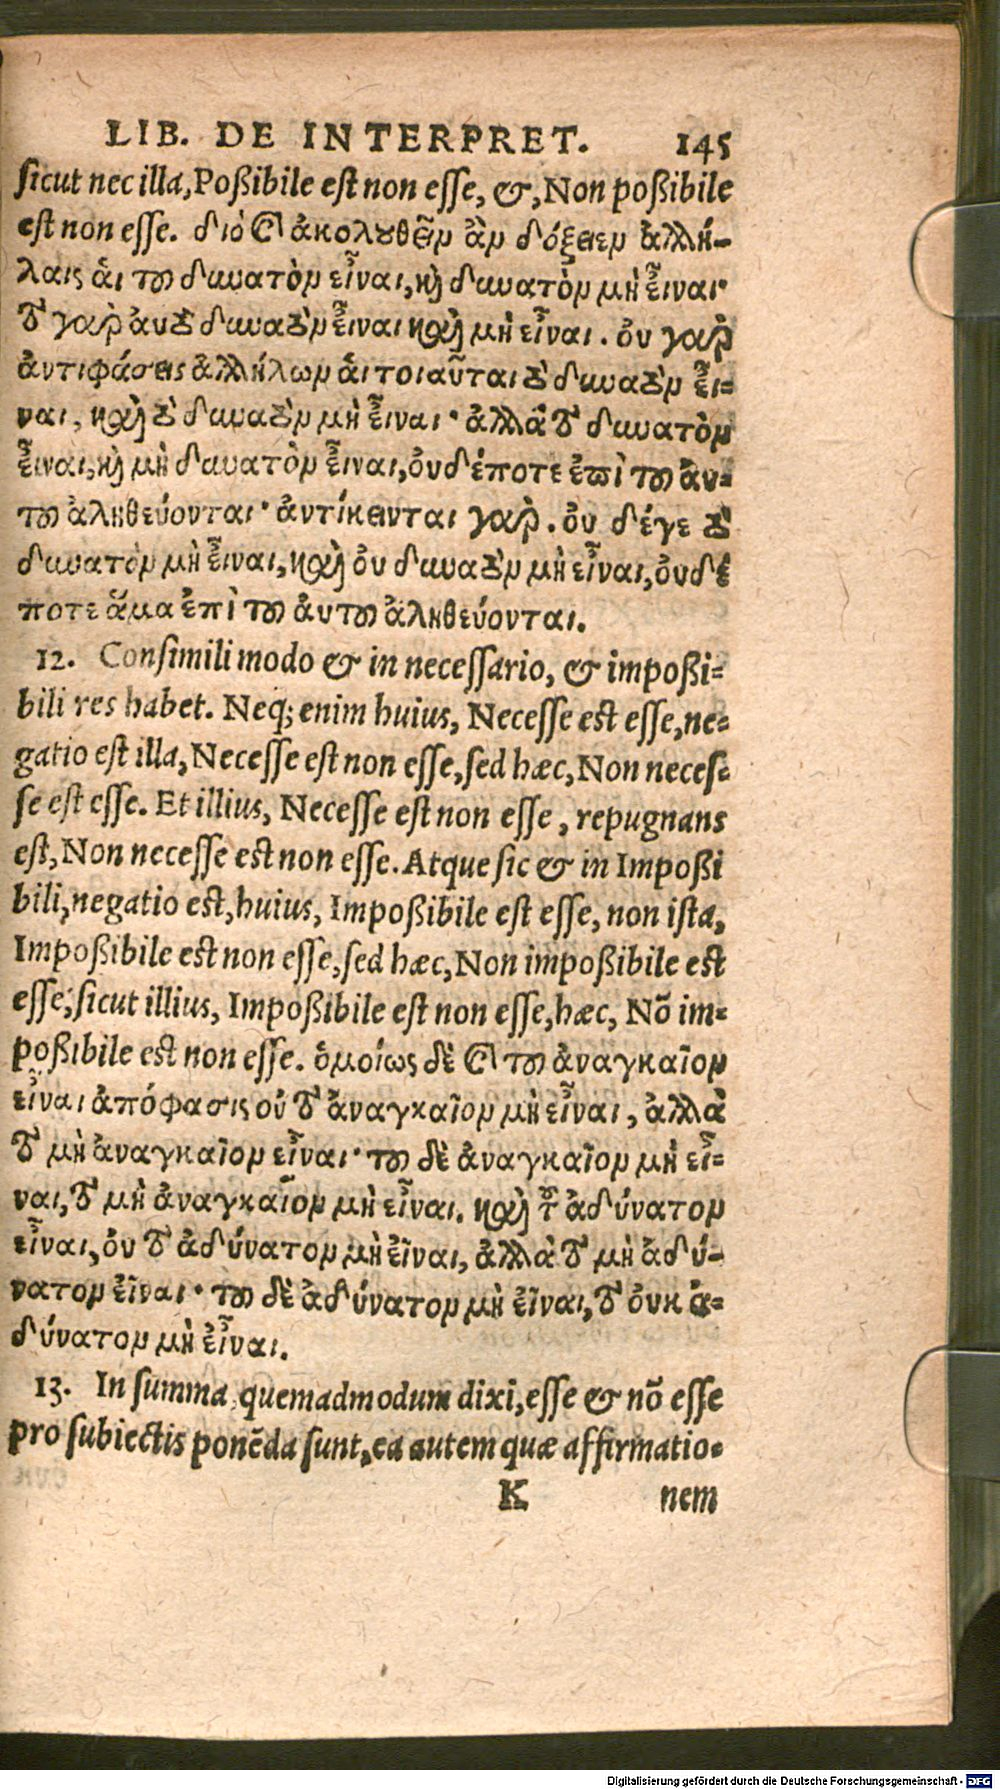 LIB. DE INTERPRET. 145
sicut nec illa, Poßibile est non esse, &, Non poßibile
est non esse. διὸ καὶ ἀκολουθεῖν ἂν δόξειεν ἀλλή-
λαις ἁι τοῦ δυνατὸν εἶναι, κὶ δυνατὸν μὴ εἶναι·
τὸ γὰρ ἀυτὸ δυνατὸν εἶναι καὶ μὴ εἶναι. ὀυ γὰρ
ἀντιφάσεις ἀλλήλων ἁι τοιαῦται τὸ δυνατὸν εἶ-
ναι, καὶ τὸ δυνατὸν μὴ εἶναι· ἀλλὰ τὸ δυνατὸν
εἶναι, κὶ μὴ δυνατὸν εἶναι, ὀυδέποτε ἐπὶ τοῦ ἀυ-
τοῦ ἀληθεύονται· ἀντίκεινται γὰρ. ὀυ δέγε τὸ
δυνατὸν μὴ εἶναι, καὶ ὀυ δυνατὸν μὴ εἶναι, ὀυδέ
ποτε ἅμα ἐπὶ τοῦ ἀυτοῦ ἀληθεύονται.
12. Consimili modo & in necessario, & impoßi-
bili res habet. Neq; enim huius, Necesse est esse, ne-
gatio est illa, Necesse est non esse, sed hæc, Non neces-
se est esse. Et illius, Necesse est non esse, repugnans
est, Non necesse est non esse. Atque sic & in Impoßi
bili, negatio est, huius, Impoßibile est esse, non ista,
Impoßibile est non esse, sed hæc, Non impoßibile est
esse; sicut illius, Impoßibile est non esse, hæc, Nõ im-
poßibile est non esse. ὁμοίως δὲ καὶ τοῦ ἀναγκαῖον
εἶναι ἀπόφασις οὐ τὸ ἀναγκαῖον μὴ εἶναι, ἀλλὰ
τὸ μὴ ἀναγκαῖον εἶναι· τοῦ δὲ ἀναγκαῖον μὴ εἶ-
ναι, τὸ μὴ ἀναγκαῖον μὴ εἶναι. καὶ τοῦ ἀδύνατον
εἶναι, ὀυ τὸ ἀδύνατον μὴ εἶναι, ἀλλὰ τὸ μὴ ἀδύ-
νατον εἶναι· τοῦ δὲ ἀδύνατον μὴ εἶναι, τὸ ὀυκ ἀ-
δύνατον μὴ εἶναι.
13. In summa, quemadmodum dixi, esse & nõ esse
pro subiectis ponẽda sunt, ea autem quæ affirmatio-
K nem
Digitalisierung gefördert durch die Deutsche Forschungsgemeinschaft - DFG